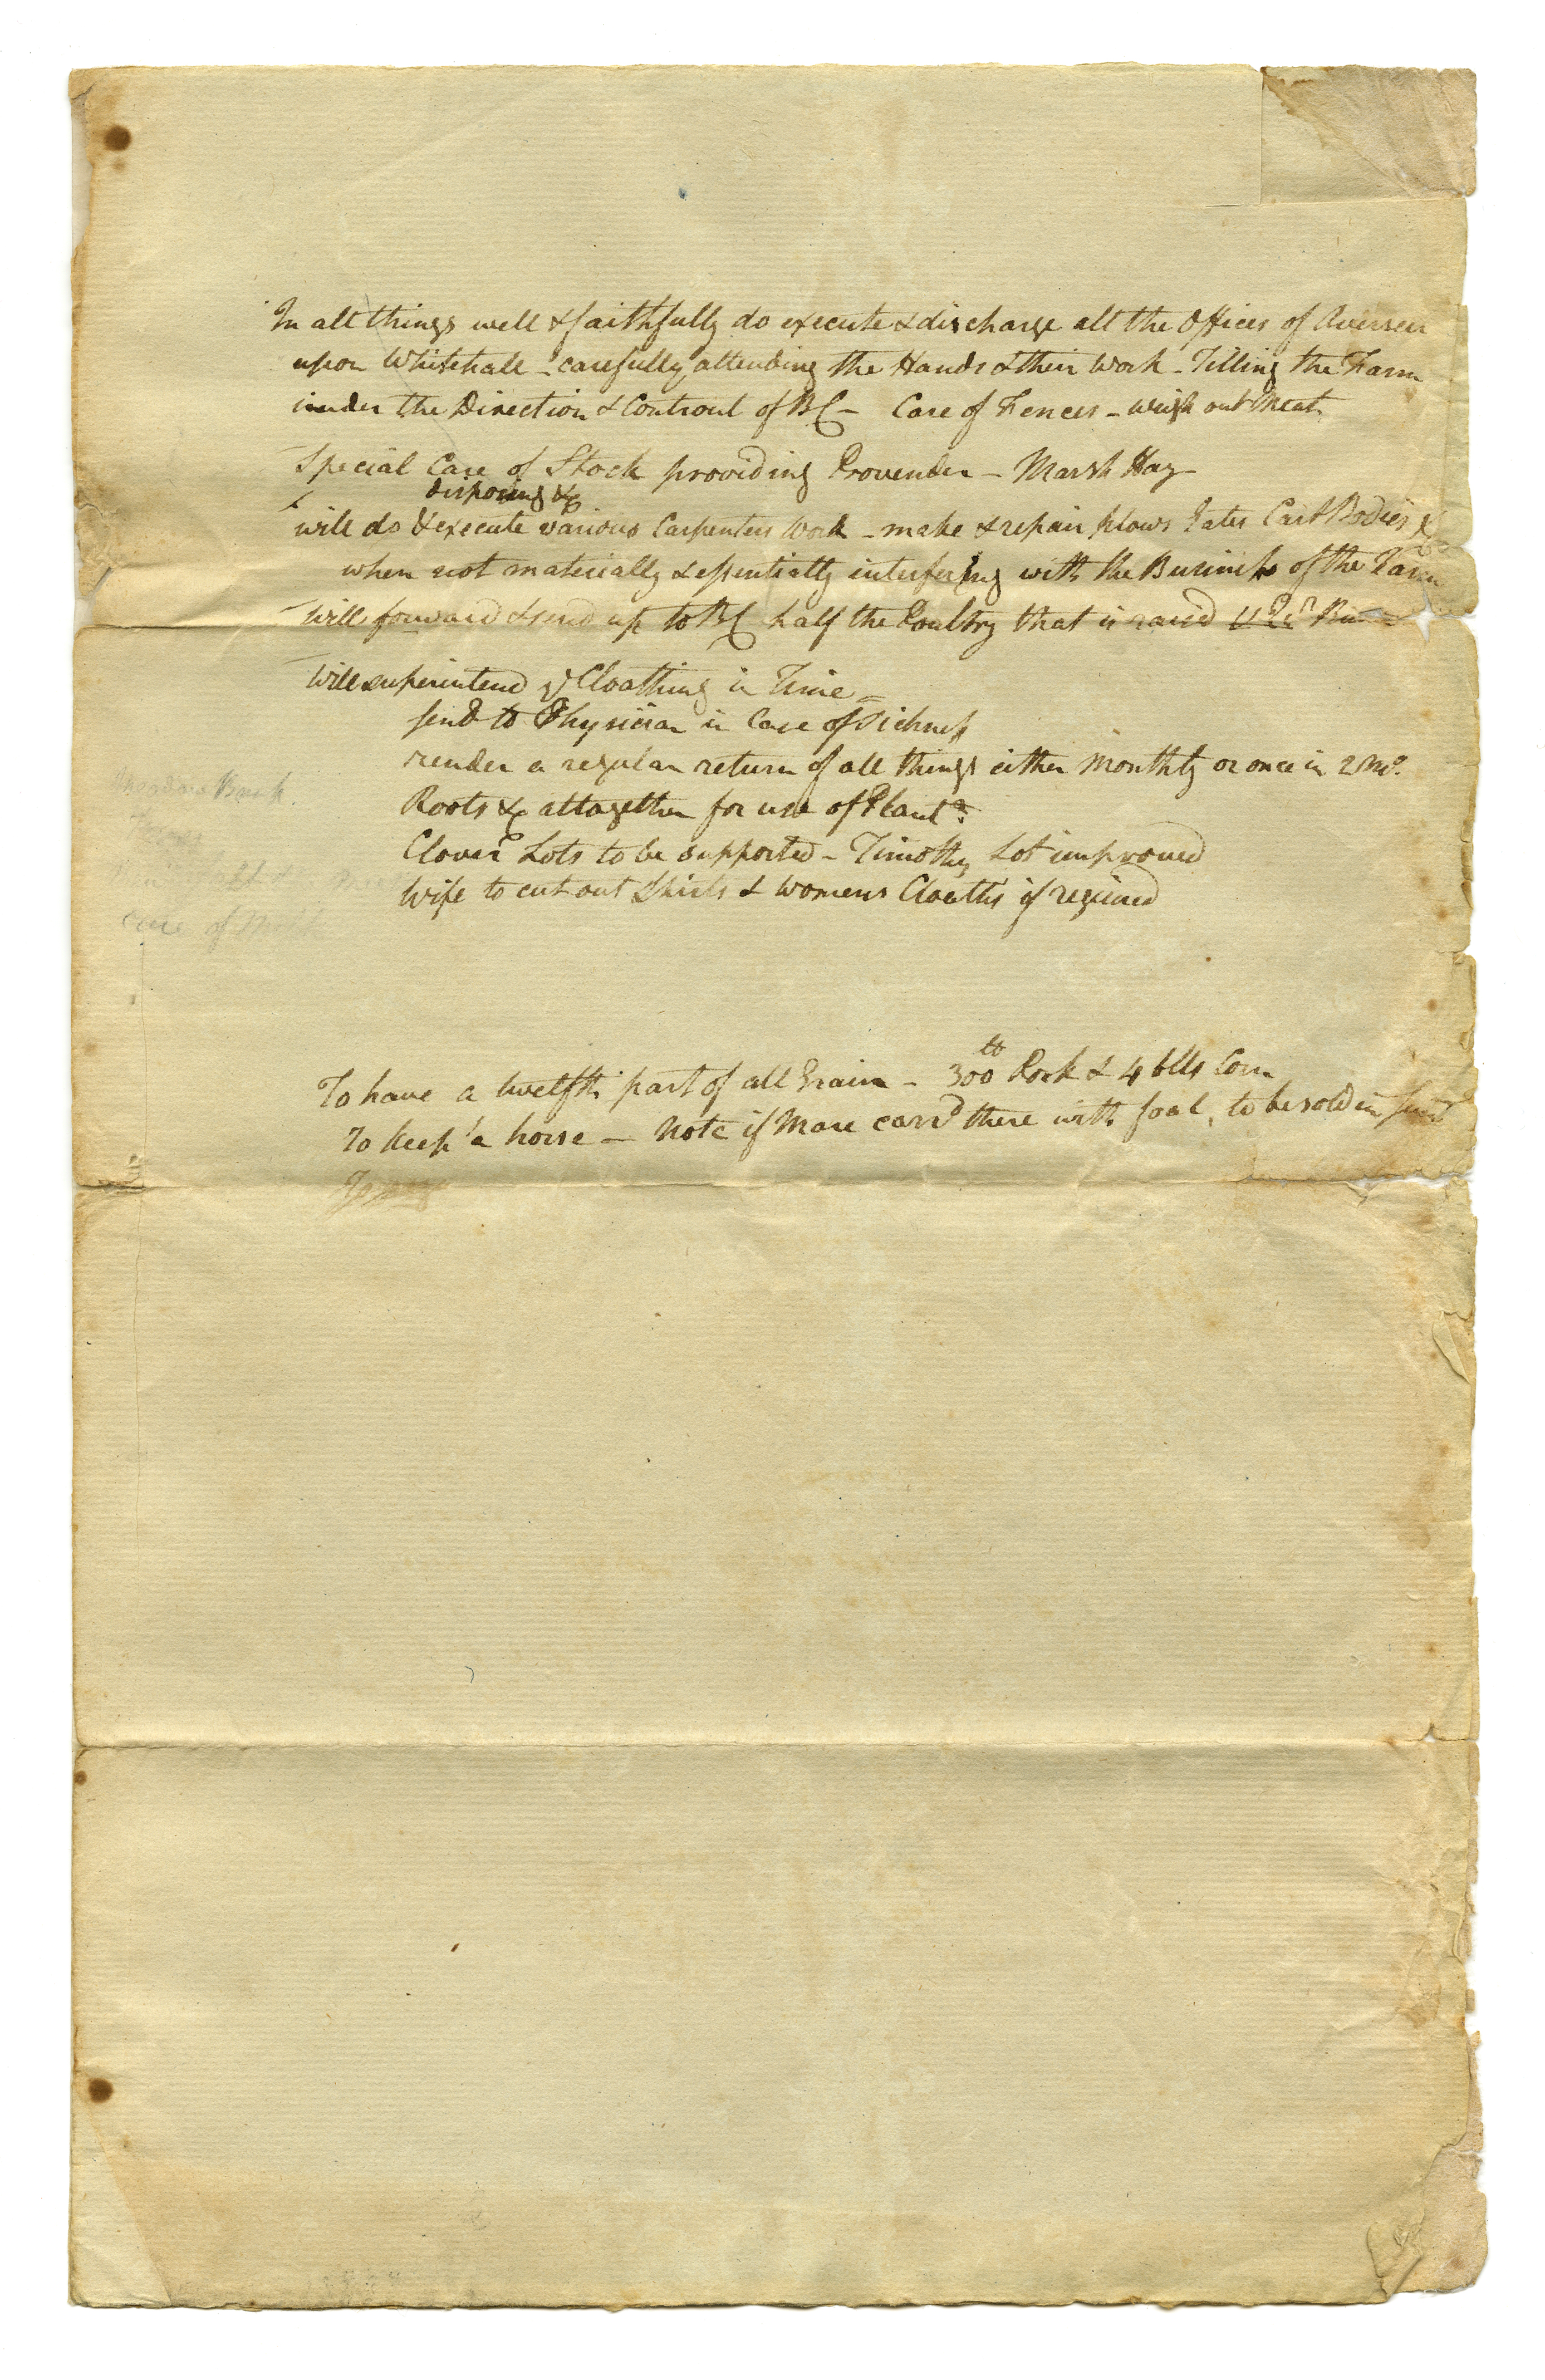 In all things well & faithfully do execute & discharge all the Offices of Overseer
upon Whitehall - carefully attending the Hands & their Work - Tilling the Farm
under the Direction & Controul of BC - Care of Fences - weigh out Meat
Special Care of Stock providing Provender - Marsh Hay
disposing &c
will do & execute various Carpenters Work - make & repair plows Gates Cart Bodies &c
when not materially & essentially interfering with the Business of the Farm
will forward & send up to BC half the Poultry that is raised
will superintend ye Cloathing in Time
send to Physician in Case of Sickness
render a regular return of all things either Monthly or once in 2 Mo.
Roots &c altogether for use of Plantn.
Clover Lots to be supported - Timothy Lot improved
Wife to cut out Shirts & Womens Cloaths if required
Care of
To have a twelfth part of all Grain - 300 lb Pork & 4 blls Corn
To keep a horse - Note if Mare carrd there with foal, to be sold in